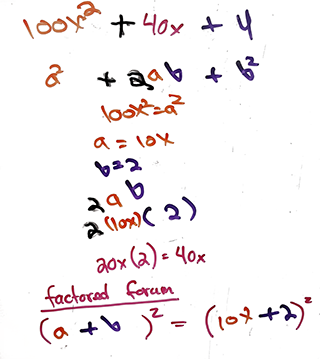 100x² + 40x + 4
a² + 2ab + b²
100x² = a²
a = 10x
b = 2
2 a b
2 (10x) ( 2 )
20x (2) = 40x
factored forum
(a + b )² = (10x + 2)²